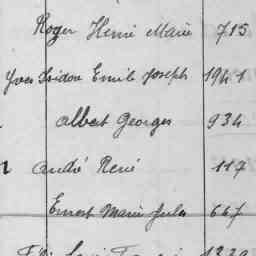 Roger Henri Marie 715
Yves Isidore Emile Joseph 1941
Albert Georges 934
André René 117
Ernest Marie Jules 667